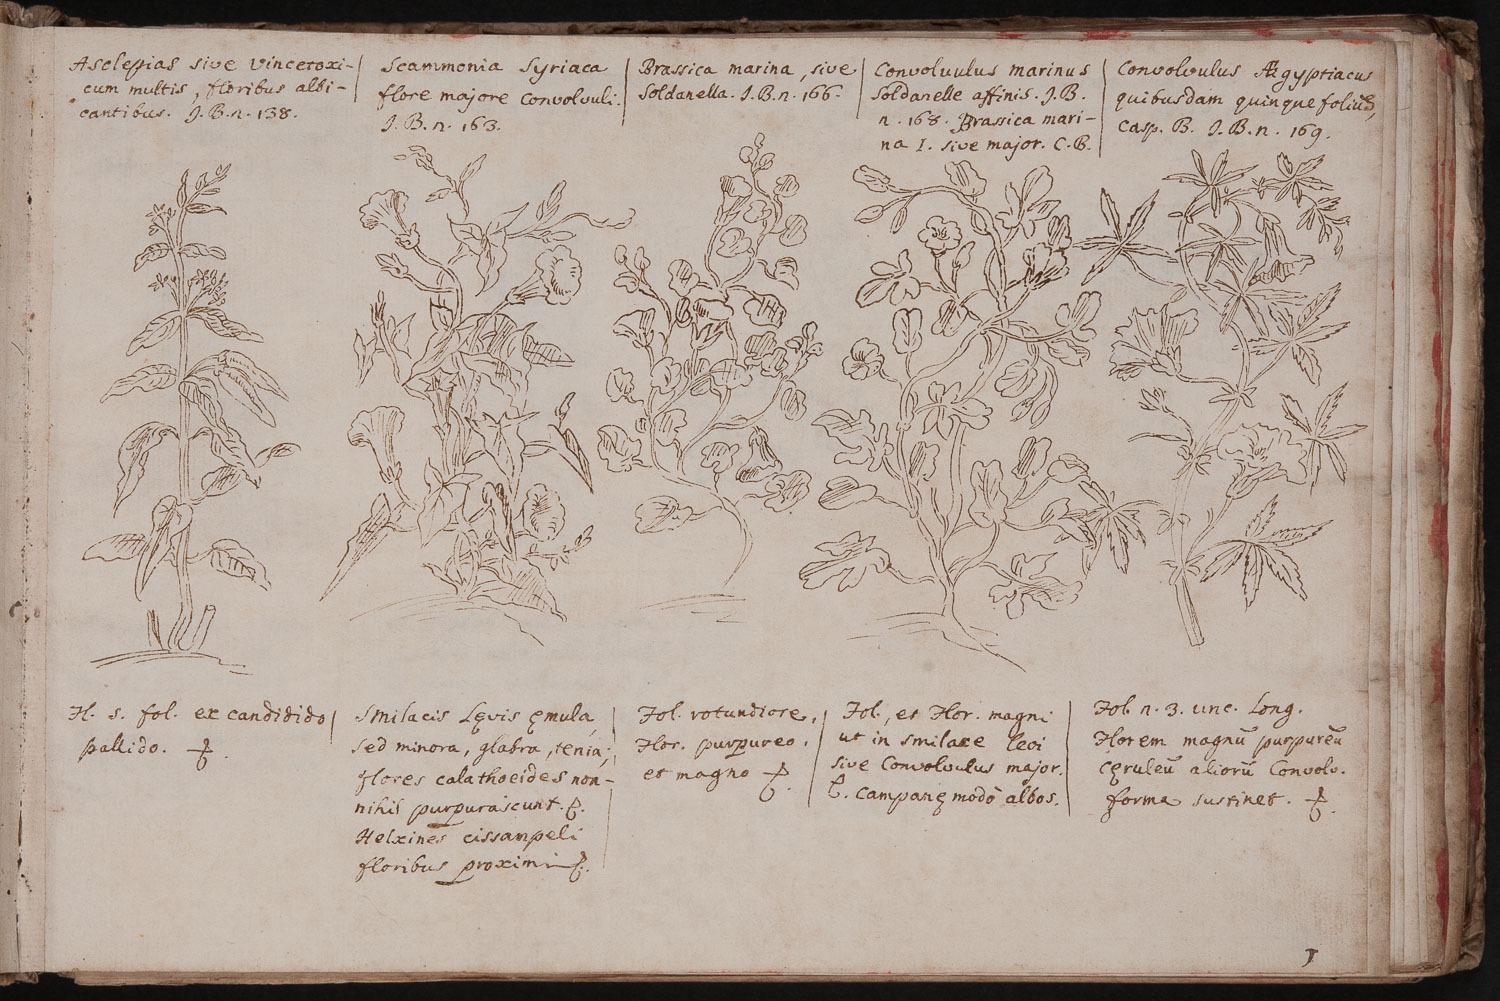 Asclepias sive vincetoxi-
cum multis, floribus albi-
cantibus. J.B.n. 138.
Scammonia Syriaca
flore majore convolvuli.
J.B.n. 163.
Brassica marina, sive
Soldanella. J.B.n. 166.
Convolvulus marinus
Soldanelle affinis. J.B.
n. 168. Brassica mari-
na I. sive major. C.B.
Convolvulus Ægyptiacus
quibusdam quinque foliu͂s,
Casp. B. J.B.n. 169.
H. s. fol. ex candidido
pallido.
Smilacis Lęvis ęmula,
sed minora, glabra, tenia;
flores calathoeides non-
nihil purpurascunt.
Helxines cissampeli
floribus proximi
Fol. rotundiore,
Flor. purpureo.
et magno
Fol., et Flor. magni
ut in smilace levi
sive Convolvulus major.
campanę modō albos.
Fol. n. 3. unc. long.
Florem magnū purpureū
cęruleū aliorū Convolv.
forma sustinet.
1